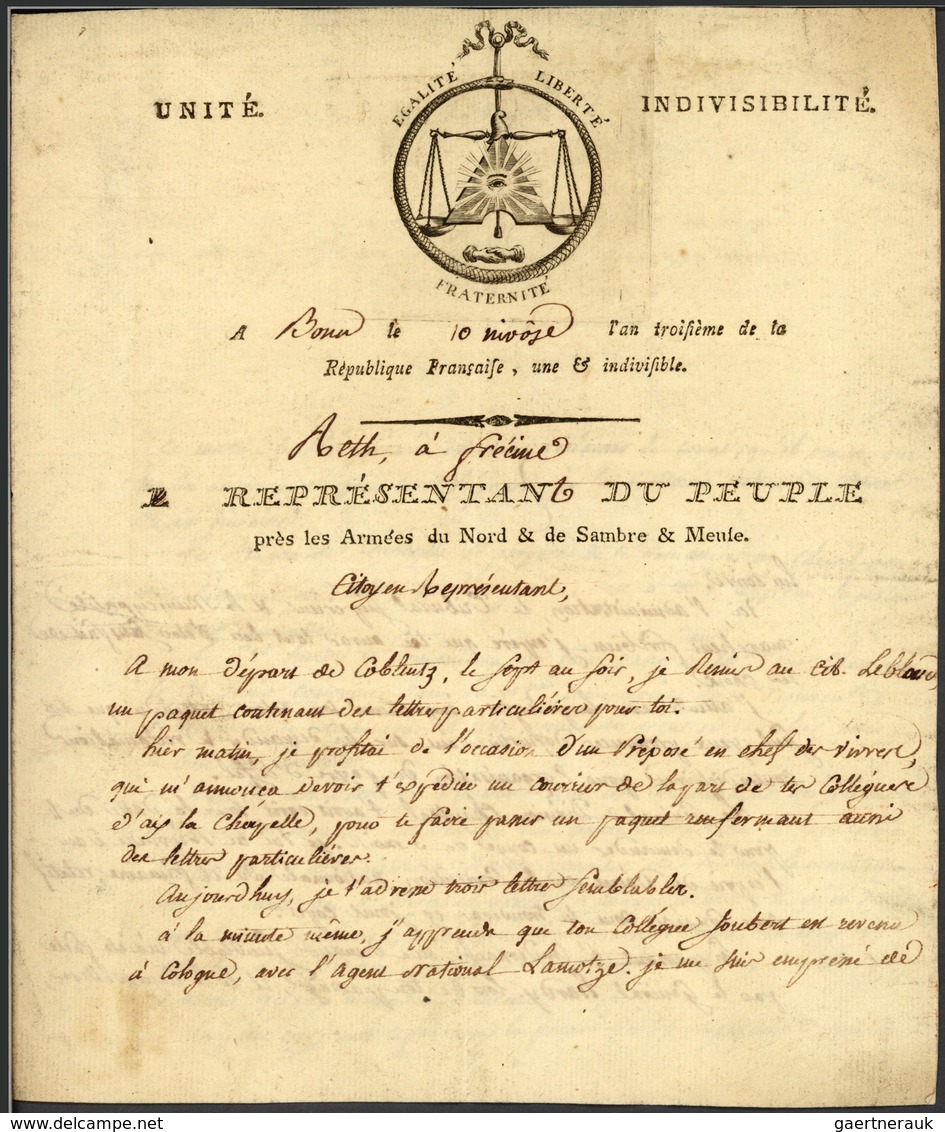 UNITÉ.
EGALITÉ LIBERTÉ
INDIVISIBILITÉ.
FRATERNITÉ
A Bonn le 10 nivôse l'an troisième de la
République Française, une & indivisible.
Aeth, à frécine
REPRÉSENTANt DU PEUPLE
près les Armées du Nord & de Sambre & Meuse.
Citoyen Représentant,
A mon départ de Coblentz, le sept au soir, je Remis au cit. Leblanc
un paquet contenant des lettres particuliéres pour toi.
hier matin, je profitai de l'occasion d'un Préposé en chef des vivres,
qui m'annonça devoir t'expédier un courrier de la part de tes Collégues
d'aix la Chapelle, pour te faire passer un paquet renfermant aussi
des lettres particuliéres.
Aujourdhuy, je t'adresse trois lettres semblables.
à la minute même, j'apprends que ton Collégue Joubert en revenu
à Cologne, avec l'agent National Lamotze. je me suis empressé de
delcampe.net
gaertnerauk